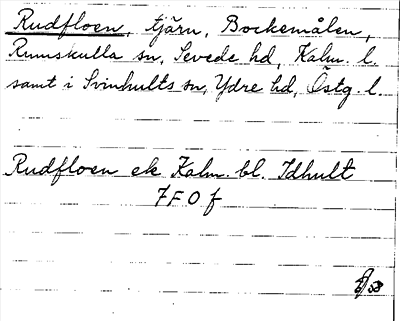 Rudfloen, tjärn, Bockemålen,
Rumskulla sn, Sevede hd, Kalm. l.
samt i Svinhults sn, Ydre hd, Östg. l.
Rudfloen ek Kalm. bl. Idhult
7 F 0 f